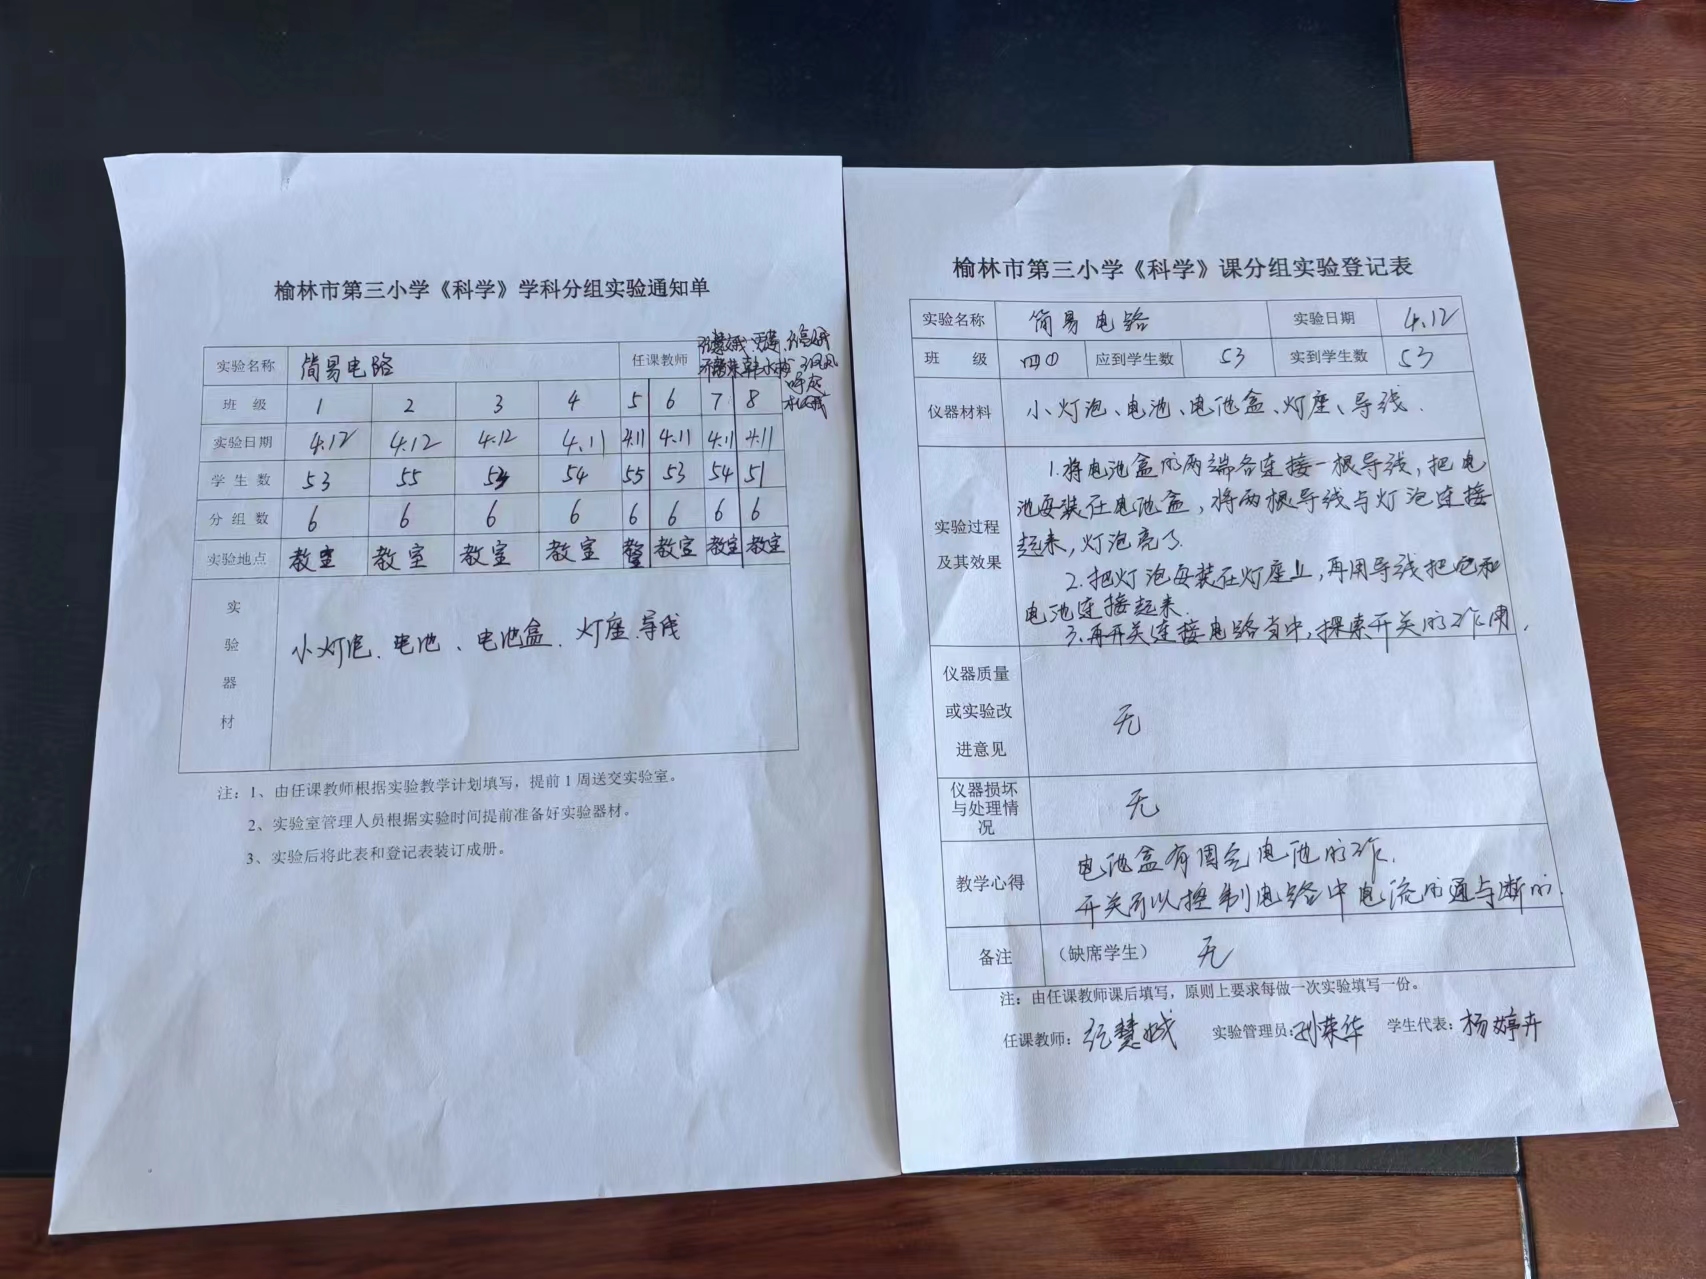 榆林市第三小学《科学》学科分组实验通知单
实验名称 简易电路 任课教师
班 级 1 2 3 4 5 6 7 8
实验日期 4.12 4.12 4.12 4.11 4.11 4.11 4.11 4.11
学 生 数 53 55 54 55 53 54 51
分 组 数 6 6 6 6 6 6 6 6
实验地点 教室 教室 教室 教室 教室 教室 教室 教室
实
验
器
材
小灯泡、电池、电池盒、灯座、导线
注：1、由任课教师根据实验教学计划填写，提前1周送交实验室。
2、实验室管理人员根据实验时间提前准备好实验器材。
3、实验后将此表和登记表装订成册。
榆林市第三小学《科学》课分组实验登记表
实验名称 简易电路 实验日期 4.12
班 级 四① 应到学生数 53 实到学生数 53
仪器材料 小灯泡、电池、电池盒、灯座、导线.
实验过程
及其效果
1.将电池盒的两端各连接一根导线，把电
池安装在电池盒，将两根导线与灯泡连接
起来，灯泡亮了.
2.把灯泡安装在灯座上，再用导线把它和
电池连接起来.
3.再开关连接电路当中，探索开关的工作用.
仪器质量
或实验改
进意见
无
仪器损坏
与处理情
况
无
教学心得
电池盒有固定电池的工作.
开关可以控制电路中电流的通与断的.
备注 （缺席学生） 无
注：由任课教师课后填写，原则上要求每做一次实验填写一份。
任课教师： 实验管理员：孙荣华 学生代表：杨婷卉